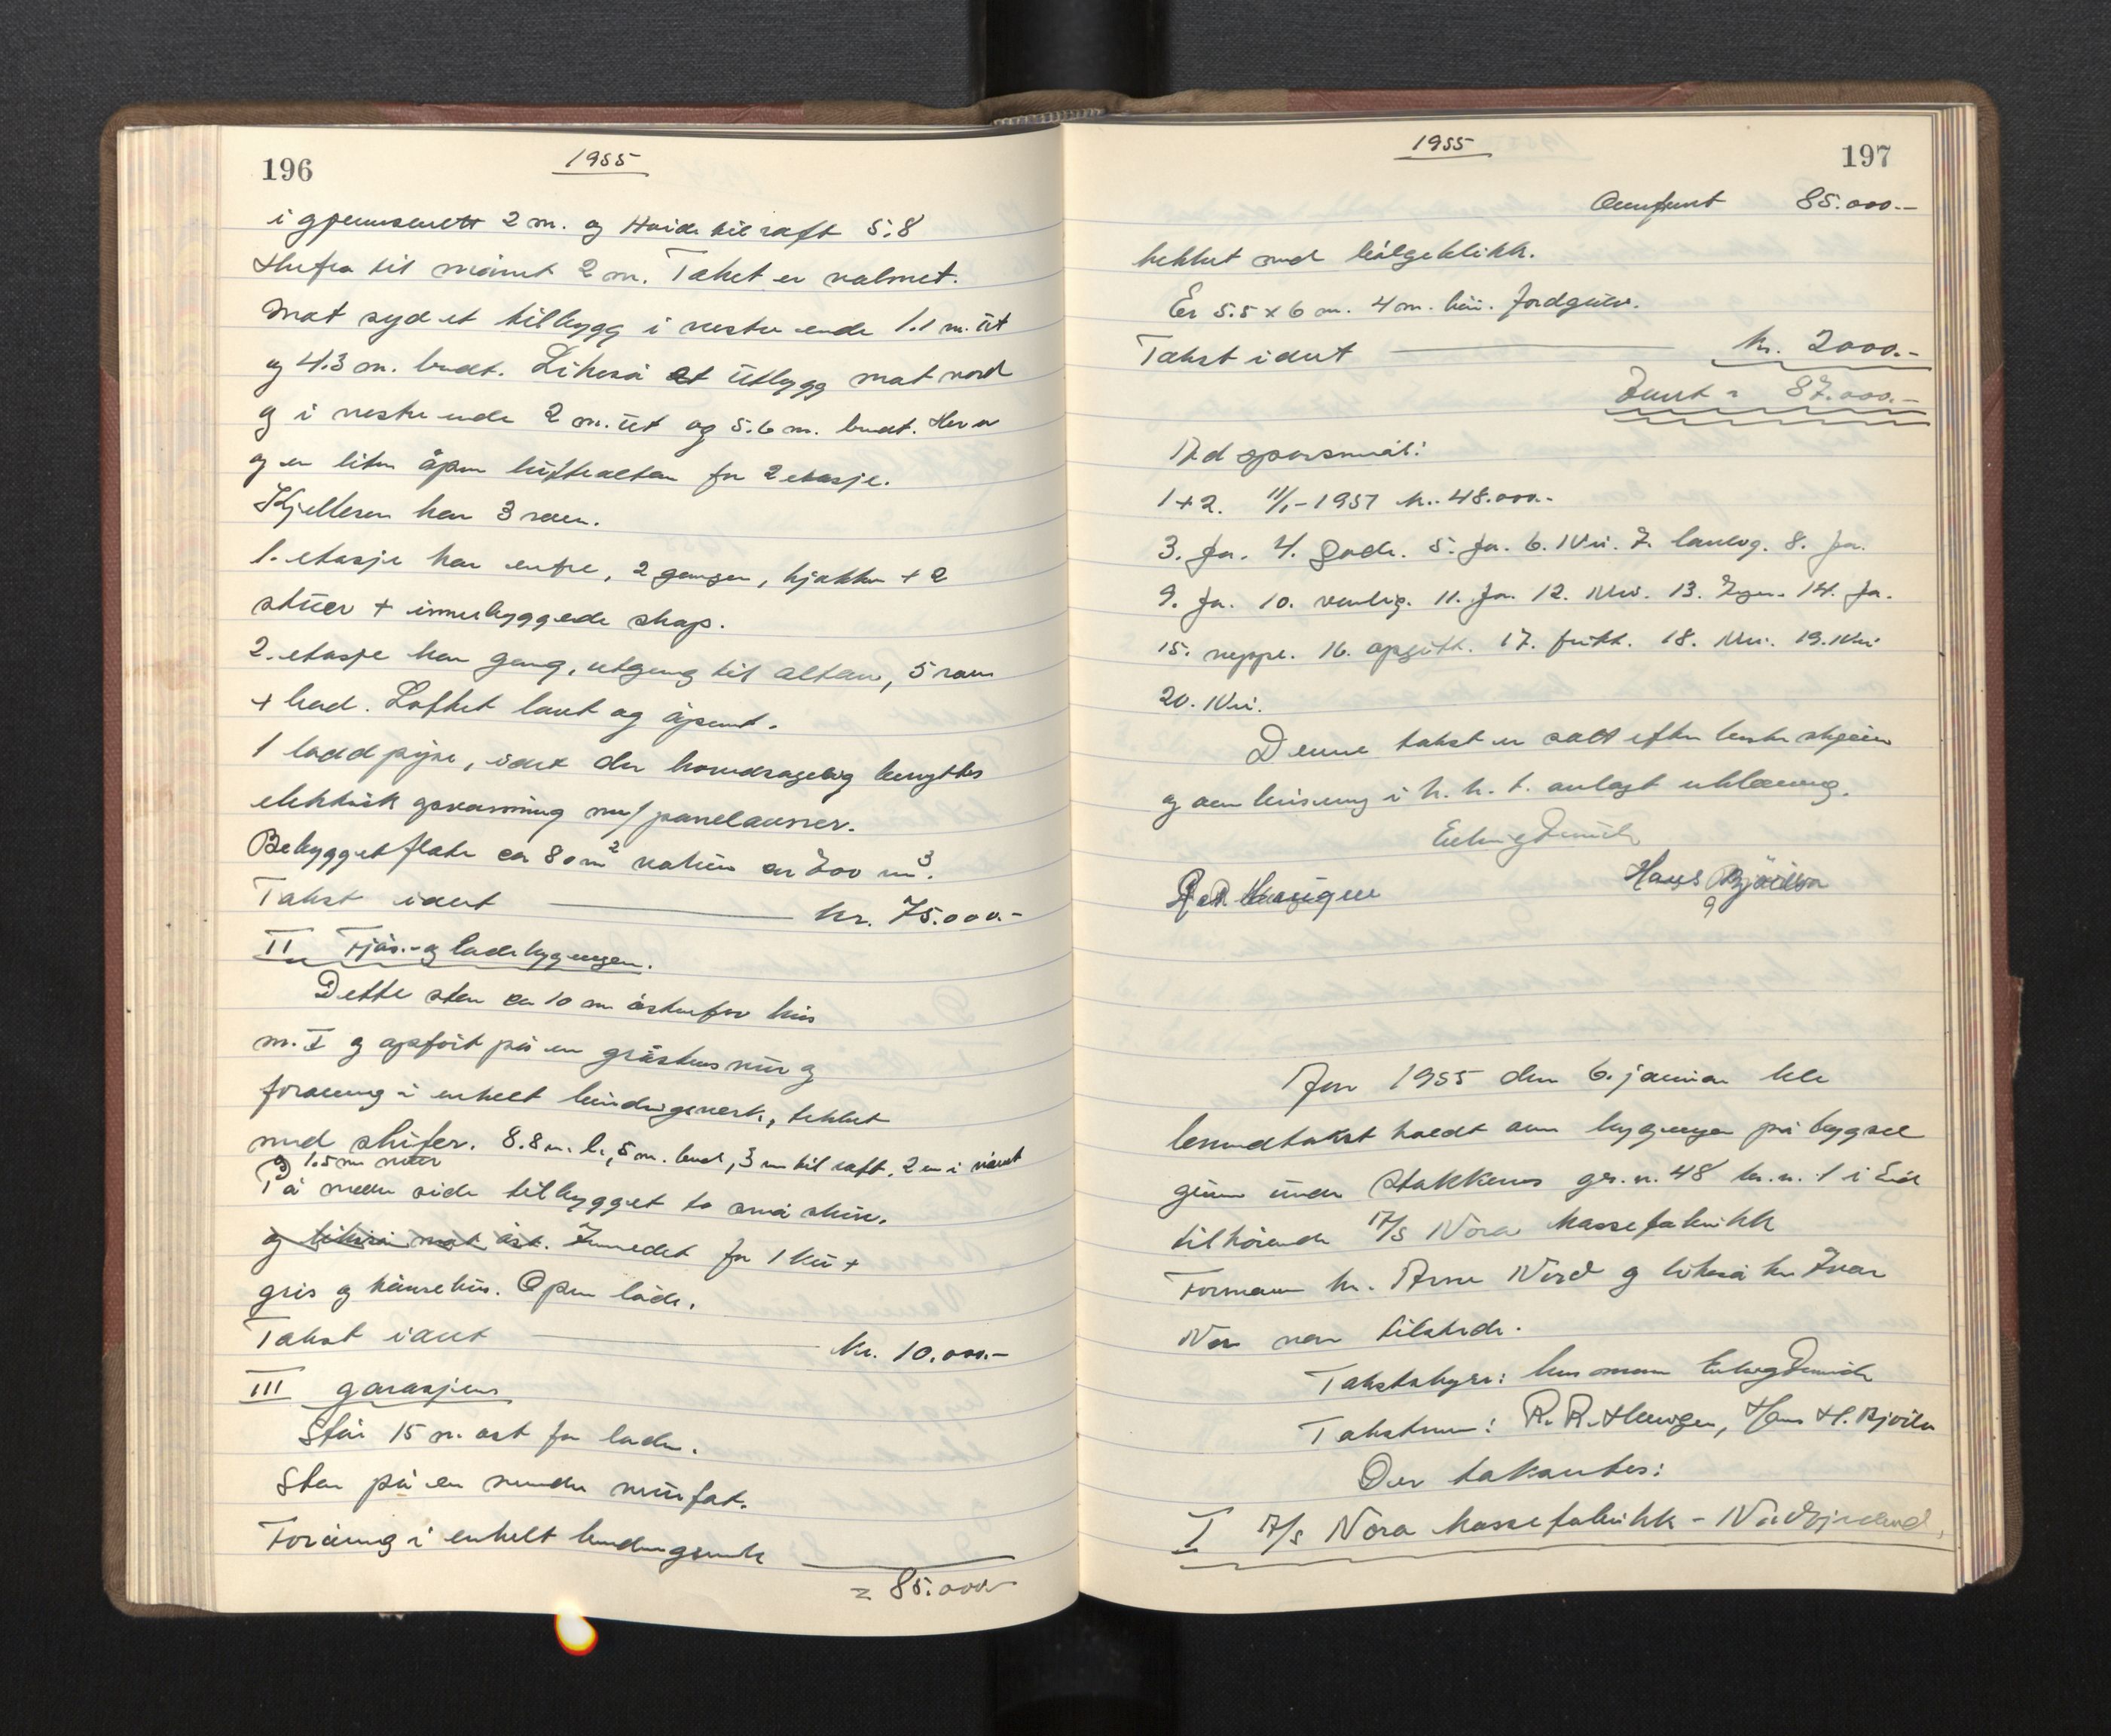 196
1955
i gjennsnett 2 m. og Høide til raft 5.8
Herfra til mönet 2 m. Taket er valmet.
Mot syd et tilbygg i vestre ende 1.1 m. ut
og 4.3 m. bredt. Likeså et utbygg mot nord
og i vestre ende 2 m. ut og 5.6 m. bredt. Her er
og en liten åpen luftealtan for 2 etasje.
Kjelleren har 3 rom.
1. etasje har entre, 2 ganger, kjökken + 2
stuer + innerbyggede skap.
2. etasje har gang, utgang til altan, 5 rom
+ bad. Loftet lavt og åpent.
1 ladd pipe, idet der hovedsagelig benyttes
elektrisk opvarming m/ panelovner.
Bebygget flate ca 80 m² volum ca 700 m³.
Takst idet kr. 75.000.-
II Fjös- og ladebygningen.
Dette står ca 10 m östenfor hus
nr. I og opfört på en gråstensmur og
foröverig i enkelt bindingsverk, tekket
med skifer. 8.8 m. l., 5 m. bred, 3 m til raft, 2 m i mönet
og 1.5 m mur
På nedre side tilbygget to små skur.
og likeså mot öst. Innredet for 1 ku +
gris og hönsehus. Open låde.
Takst idet kr. 10.000.-
III garasjen
Står 15 m. öst for laden.
Står på en mindre murfot.
Foröverig i enkelt bindingsverk
= 85.000
1955
197
Overfört 85.000.-
tekket med bölgeblikk.
Er 5.5 x 6 m. 4 m. höi. Jordgulv.
Takst idet kr. 2000.-
Sum = 87.000.-
Ad spörsmål:
1+2. 11/1-1951 kr. 48.000.-
3. Ja. 4. Gode. 5. Ja. 6. Nei. 7. lanlig. 8. Ja.
9. Ja. 10. vanlig. 11. Ja. 12. Nei. 13. Ingen. 14. Ja.
15. neppe. 16. opgitt. 17. fritt. 18. Nei. 19. Nei
20. Nei.
Denne takst er satt efter beste skjön
og overbevisning i h. h. t. avlagt erklæring.
Hans Bjöilva
År 1955 den 6. januar ble
branntakst holdt over bygninger på bygsel
grunn under Stakkenes gr. n. 48 br. n. 1 i Eid
tilhörende A/S Nora Kassefabrikk
Formann hr. Arne Nord og likeså hr Ivar
Nor var tilstede.
Takstbestyrer:
Takstmenn: R. R. Haugen, Hans H. Bjöilva
Der takseres:
I A/S Nora Kassefabrikk - Nordfjordeid.